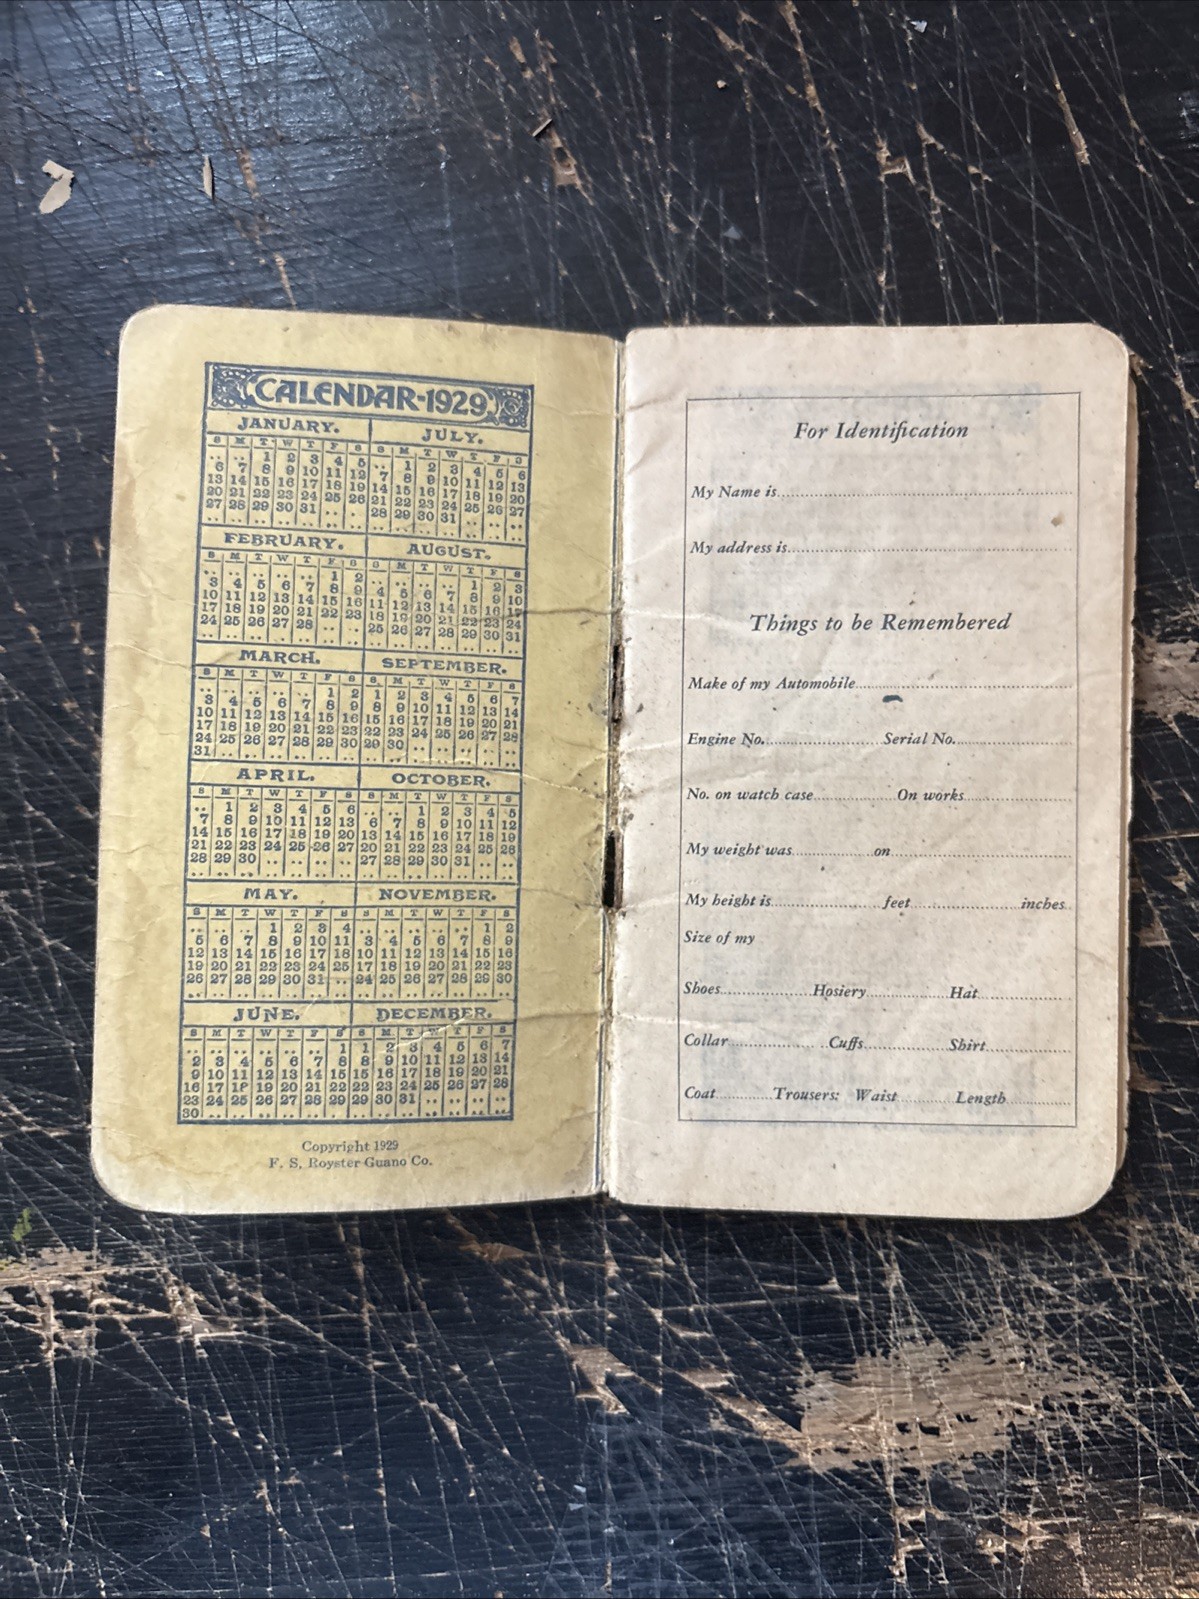 CALENDAR-1929
JANUARY.
S M T W T F S
.. .. 1 2 3 4 5
6 7 8 9 10 11 12
13 14 15 16 17 18 19
20 21 22 23 24 25 26
27 28 29 30 31 .. ..
JULY.
S M T W T F S
.. 1 2 3 4 5 6
7 8 9 10 11 12 13
14 15 16 17 18 19 20
21 22 23 24 25 26 27
28 29 30 31 .. .. ..
FEBRUARY.
S M T W T F S
.. .. .. .. .. 1 2
3 4 5 6 7 8 9
10 11 12 13 14 15 16
17 18 19 20 21 22 23
24 25 26 27 28 .. ..
AUGUST.
S M T W T F S
.. .. .. .. 1 2 3
4 5 6 7 8 9 10
11 12 13 14 15 16 17
18 19 20 21 22 23 24
25 26 27 28 29 30 31
MARCH.
S M T W T F S
.. .. .. .. .. 1 2
3 4 5 6 7 8 9
10 11 12 13 14 15 16
17 18 19 20 21 22 23
24 25 26 27 28 29 30
31 .. .. .. .. .. ..
SEPTEMBER.
S M T W T F S
1 2 3 4 5 6 7
8 9 10 11 12 13 14
15 16 17 18 19 20 21
22 23 24 25 26 27 28
29 30 .. .. .. .. ..
APRIL.
S M T W T F S
.. 1 2 3 4 5 6
7 8 9 10 11 12 13
14 15 16 17 18 19 20
21 22 23 24 25 26 27
28 29 30 .. .. .. ..
OCTOBER.
S M T W T F S
.. .. 1 2 3 4 5
6 7 8 9 10 11 12
13 14 15 16 17 18 19
20 21 22 23 24 25 26
27 28 29 30 31 .. ..
MAY.
S M T W T F S
.. .. .. 1 2 3 4
5 6 7 8 9 10 11
12 13 14 15 16 17 18
19 20 21 22 23 24 25
26 27 28 29 30 31 ..
NOVEMBER.
S M T W T F S
.. .. .. .. .. 1 2
3 4 5 6 7 8 9
10 11 12 13 14 15 16
17 18 19 20 21 22 23
24 25 26 27 28 29 30
JUNE.
S M T W T F S
.. .. .. .. .. .. 1
2 3 4 5 6 7 8
9 10 11 12 13 14 15
16 17 18 19 20 21 22
23 24 25 26 27 28 29
30 .. .. .. .. .. ..
DECEMBER.
S M T W T F S
1 2 3 4 5 6 7
8 9 10 11 12 13 14
15 16 17 18 19 20 21
22 23 24 25 26 27 28
29 30 31 .. .. .. ..
Copyright 1929
F. S. Royster Guano Co.
For Identification
My Name is
My address is
Things to be Remembered
Make of my Automobile
Engine No. Serial No.
No. on watch case On works
My weight was on
My height is feet inches
Size of my
Shoes Hosiery Hat
Collar Cuffs Shirt
Coat Trousers: Waist Length